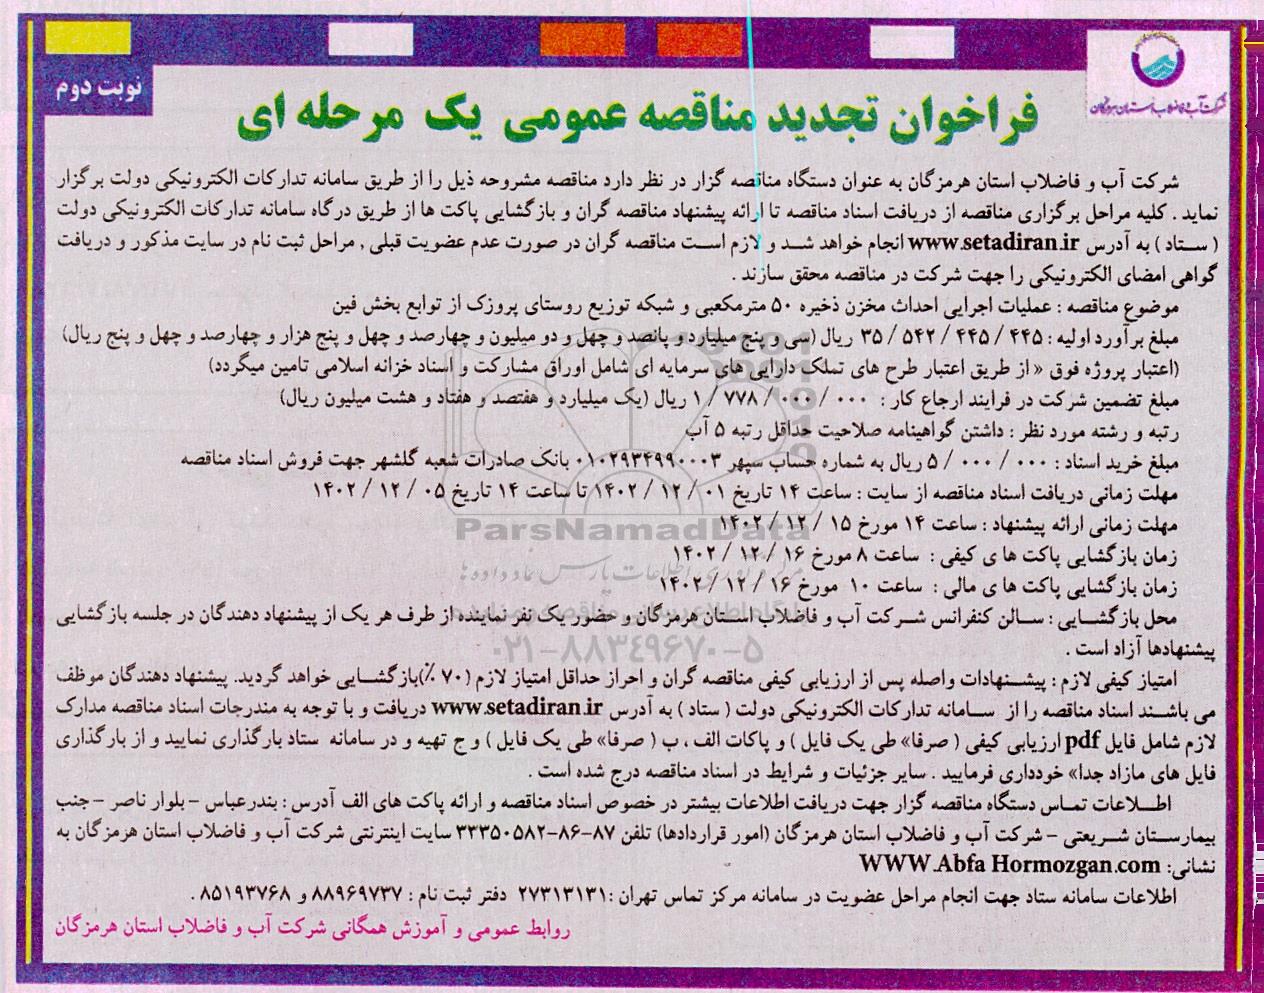 شرکت آب و فاضلاب استان هرمزگان
نوبت دوم
فراخوان تجدید مناقصه عمومی یک مرحله ای
شرکت آب و فاضلاب استان هرمزگان به عنوان دستگاه مناقصه گزار در نظر دارد مناقصه مشروحه ذیل را از طریق سامانه تدارکات الکترونیکی دولت برگزار
نماید . کلیه مراحل برگزاری مناقصه از دریافت اسناد مناقصه تا ارائه پیشنهاد مناقصه گران و بازگشایی پاکت ها از طریق درگاه سامانه تدارکات الکترونیکی دولت
( ستاد ) به آدرس www.setadiran.ir انجام خواهد شد و لازم است مناقصه گران در صورت عدم عضویت قبلی , مراحل ثبت نام در سایت مذکور و دریافت
گواهی امضای الکترونیکی را جهت شرکت در مناقصه محقق سازند .
موضوع مناقصه : عملیات اجرایی احداث مخزن ذخیره ۵۰ مترمکعبی و شبکه توزیع روستای پروزک از توابع بخش فین
مبلغ برآورد اولیه : ۴۴۵ / ۴۴۵ / ۵۴۲ / ۳۵ ریال (سی و پنج میلیارد و پانصد و چهل و دو میلیون و چهارصد و چهل و پنج هزار و چهارصد و چهل و پنج ریال)
(اعتبار پروژه فوق « از طریق اعتبار طرح های تملک دارایی های سرمایه ای شامل اوراق مشارکت و اسناد خزانه اسلامی تامین میگردد)
مبلغ تضمین شرکت در فرایند ارجاع کار : ۰۰۰ / ۰۰۰ / ۷۷۸ / ۱ ریال (یک میلیارد و هفتصد و هفتاد و هشت میلیون ریال)
رتبه و رشته مورد نظر : داشتن گواهینامه صلاحیت حداقل رتبه ۵ آب
مبلغ خرید اسناد : ۰۰۰ / ۰۰۰ / ۵ ریال به شماره حساب سپهر ۰۱۰۲۹۳۴۹۹۰۰۰۳ بانک صادرات شعبه گلشهر جهت فروش اسناد مناقصه
مهلت زمانی دریافت اسناد مناقصه از سایت : ساعت ۱۴ تاریخ ۰۱ / ۱۲ / ۱۴۰۲ تا ساعت ۱۴ تاریخ ۰۵ / ۱۲ / ۱۴۰۲
مهلت زمانی ارائه پیشنهاد : ساعت ۱۴ مورخ ۱۵ / ۱۲ / ۱۴۰۲
زمان بازگشایی پاکت ها ی کیفی : ساعت ۸ مورخ ۱۶ / ۱۲ / ۱۴۰۲
زمان بازگشایی پاکت ها ی مالی : ساعت ۱۰ مورخ ۱۶ / ۱۲ / ۱۴۰۲
محل بازگشایی : سالن کنفرانس شرکت آب و فاضلاب استان هرمزگان و حضور یک نفر نماینده از طرف هر یک از پیشنهاد دهندگان در جلسه بازگشایی
پیشنهادها آزاد است .
امتیاز کیفی لازم : پیشنهادات واصله پس از ارزیابی کیفی مناقصه گران و احراز حداقل امتیاز لازم (۷۰ ٪)بازگشایی خواهد گردید. پیشنهاد دهندگان موظف
می باشند اسناد مناقصه را از سامانه تدارکات الکترونیکی دولت ( ستاد ) به آدرس www.setadiran.ir دریافت و با توجه به مندرجات اسناد مناقصه مدارک
لازم شامل فایل pdf ارزیابی کیفی ( صرفا» طی یک فایل ) و پاکات الف ، ب ( صرفا» طی یک فایل ) و ج تهیه و در سامانه ستاد بارگذاری نمایید و از بارگذاری
فایل های مازاد جدا» خودداری فرمایید . سایر جزئیات و شرایط در اسناد مناقصه درج شده است .
اطلاعات تماس دستگاه مناقصه گزار جهت دریافت اطلاعات بیشتر در خصوص اسناد مناقصه و ارائه پاکت های الف آدرس : بندرعباس – بلوار ناصر – جنب
بیمارستان شریعتی – شرکت آب و فاضلاب استان هرمزگان (امور قراردادها) تلفن ۸۷–۸۶–۳۳۳۵۰۵۸۲ سایت اینترنتی شرکت آب و فاضلاب استان هرمزگان به
نشانی: WWW.Abfa Hormozgan.com
اطلاعات سامانه ستاد جهت انجام مراحل عضویت در سامانه مرکز تماس تهران :۲۷۳۱۳۱۳۱ دفتر ثبت نام : ۸۸۹۶۹۷۳۷ و ۸۵۱۹۳۷۶۸ .
روابط عمومی و آموزش همگانی شرکت آب و فاضلاب استان هرمزگان
ParsNamadData
۰۲۱–۸۸۳۴۹۶۷۰–۵